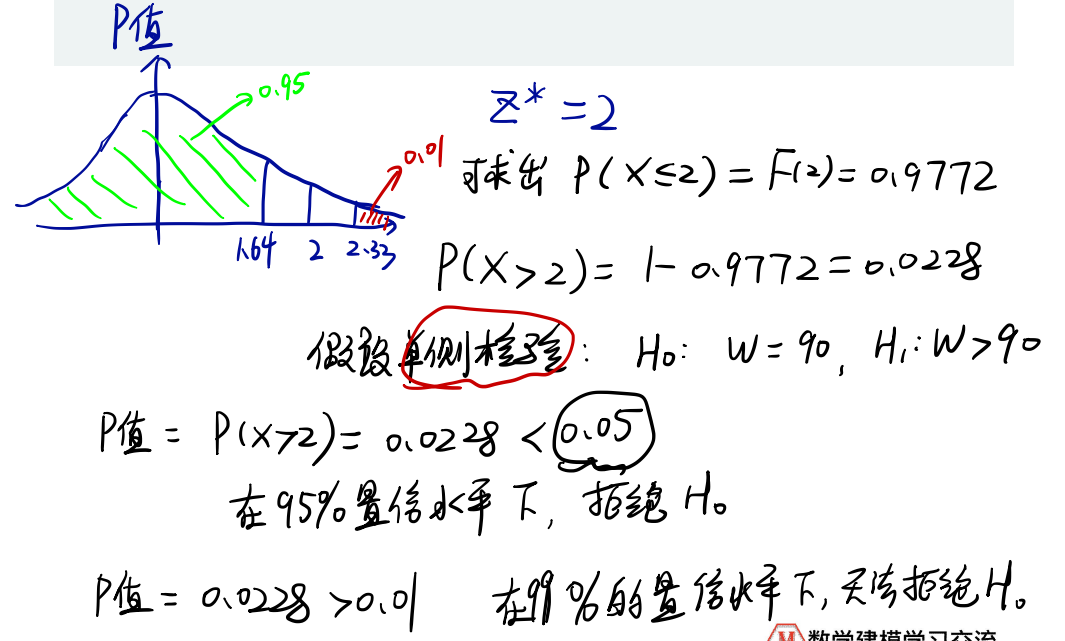 P值
0.95
0.01
1.64 2 2.33
Z* = 2
可求出 P(X≤2) = F(2) = 0.9772
P(X>2) = 1-0.9772 = 0.0228
假设单侧检验: H₀: W = 90, H₁: W>90
P值 = P(X>2) = 0.0228 < 0.05
在95%置信水平下, 拒绝H₀
P值 = 0.0228 >0.01 在99%的置信水平下, 无法拒绝H₀
数学建模学习交流